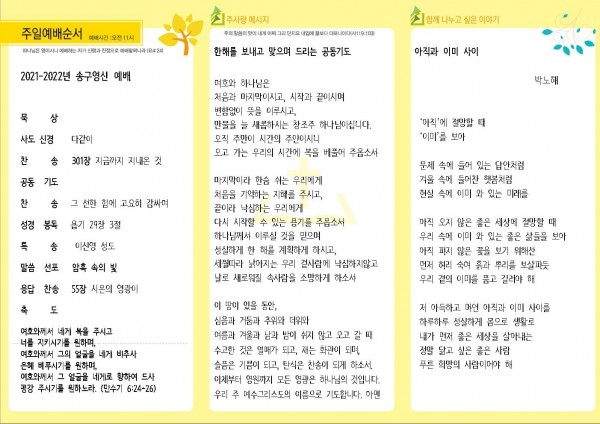 주일예배순서 예배시간 : 오전 11시
하나님은 영이시니 예배하는 자가 신령과 진정으로 예배할지니라 (요4:24)
2021-2022년 송구영신 예배
묵 상
사도 신경 다같이
찬 송 301장 지금까지 지내온 것
공동 기도
찬 송 그 선한 힘에 고요히 감싸여
성경 봉독 욥기 29장 3절
특 송 이신영 성도
말씀 선포 암흑 속의 빛
응답 찬송 55장 시온의 영광이
축 도
여호와께서 네게 복을 주시고
너를 지키시기를 원하며,
여호와께서 그의 얼굴을 네게 비추사
은혜 베푸시기를 원하며,
여호와께서 그 얼굴을 네게로 향하여 드사
평강 주시기를 원하노라. (민수기 6:24-26)
주사랑 메시지
주의 말씀의 맛이 내게 어찌 그리 단지요 내 입에 꿀보다 더 다니이다 (시119:103)
한해를 보내고 맞으며 드리는 공동기도
여호와 하나님은
처음과 마지막이시고, 시작과 끝이시며
변함없이 뜻을 이루시고,
만물을 늘 새롭게하시는 창조주 하나님이십니다.
오직 주만이 시간의 주인이시니
오고 가는 우리의 시간에 복을 베풀어 주옵소서
마지막이라 한숨 쉬는 우리에게
처음을 기억하는 지혜를 주시고,
끝이라 낙심하는 우리에게
다시 시작할 수 있는 용기를 주옵소서
하나님께서 이루실 것을 믿으며
성실하게 한 해를 계획하게 하시고,
세월따라 낡아지는 우리 겉사람에 낙심하지않고
날로 새로워질 속사람을 소망하게 하소서
이 땅이 있을 동안,
심음과 거둠과 추위와 더위와
여름과 겨울과 낮과 밤이 쉬지 않고 오고 갈 때
수고한 것은 열매가 되고, 재는 화관이 되며,
슬픔은 기쁨이 되고, 탄식은 찬송이 되게 하소서.
이제부터 영원까지 모든 영광은 하나님의 것입니다.
우리 주 예수그리스도의 이름으로 기도합니다. 아멘
함께 나누고 싶은 이야기
아직과 이미 사이
박노해
‘아직’에 절망할 때
‘이미’를 보아
문제 속에 들어 있는 답안처럼
겨울 속에 들어찬 햇봄처럼
현실 속에 이미 와 있는 미래를
아직 오지 않은 좋은 세상에 절망할 때
우리 속에 이미 와 있는 좋은 삶들을 보아
아직 피지 않은 꽃을 보기 위해선
먼저 허리 숙여 흙과 뿌리를 보살피듯
우리 곁의 이미를 품고 길러야 해
저 아득하고 머언 아직과 이미 사이를
하루하루 성실하게 몸으로 생활로
내가 먼저 좋은 세상을 살아내는
정말 닮고 싶은 좋은 사람
푸른 희망의 사람이어야 해